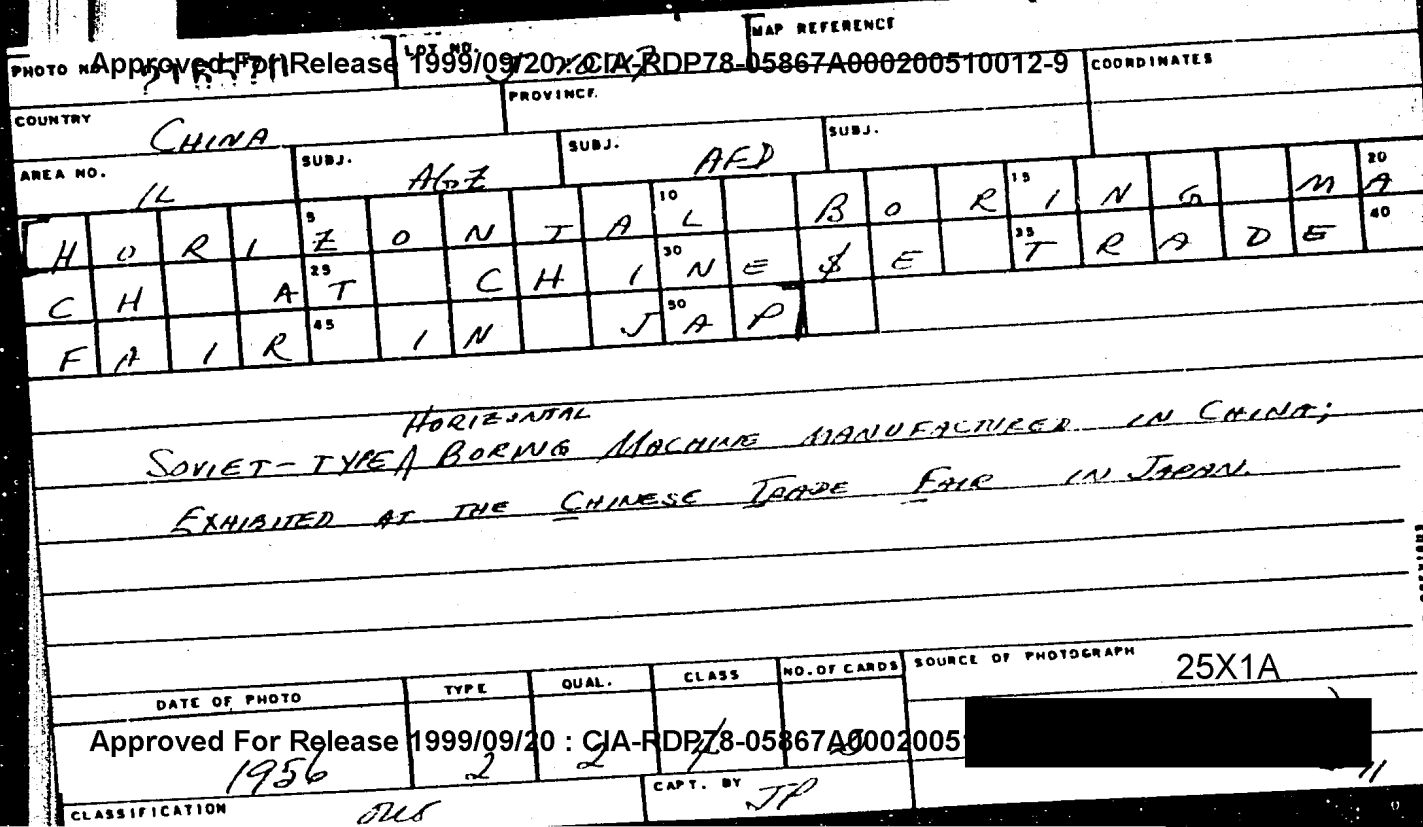 MAP REFERENCE
PHOTO NO. LOT NO.
Approved For Release 1999/09/20 : CIA-RDP78-05867A000200510012-9
COORDINATES
COUNTRY CHINA PROVINCE
AREA NO. 1L SUBJ. SUBJ. AED SUBJ.
5 10 15 20
HORIZONTAL BORING MA
25 30 35 40
CH AT CHINESE TRADE
45 50
FAIR IN JAP
HORIZONTAL
SOVIET-TYPE BORING MACHINE MANUFACTURED IN CHINA;
EXHIBITED AT THE CHINESE TRADE FAIR IN JAPAN.
DATE OF PHOTO TYPE QUAL. CLASS NO. OF CARDS SOURCE OF PHOTOGRAPH 25X1A
Approved For Release 1999/09/20 : CIA-RDP78-05867A0002005
1956 2 2
CLASSIFICATION CAPT. BY JP
11